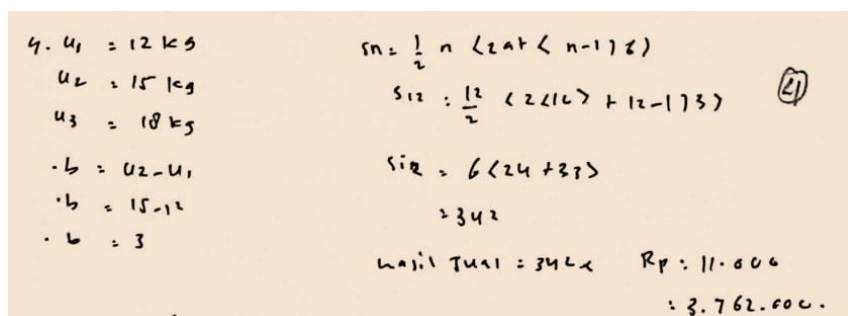 4. u₁ = 12 kg
u₂ = 15 kg
u₃ = 18 kg
· b = u₂ - u₁
· b = 15 - 12
· b = 3
Sn = 1/2 n (2a + (n-1) b)
S12 = 12/2 (2(12) + 12-1) 3)
S12 = 6 (24 + 33)
= 342
Hasil Jual = 342 x Rp : 11.000
= 3.762.000.